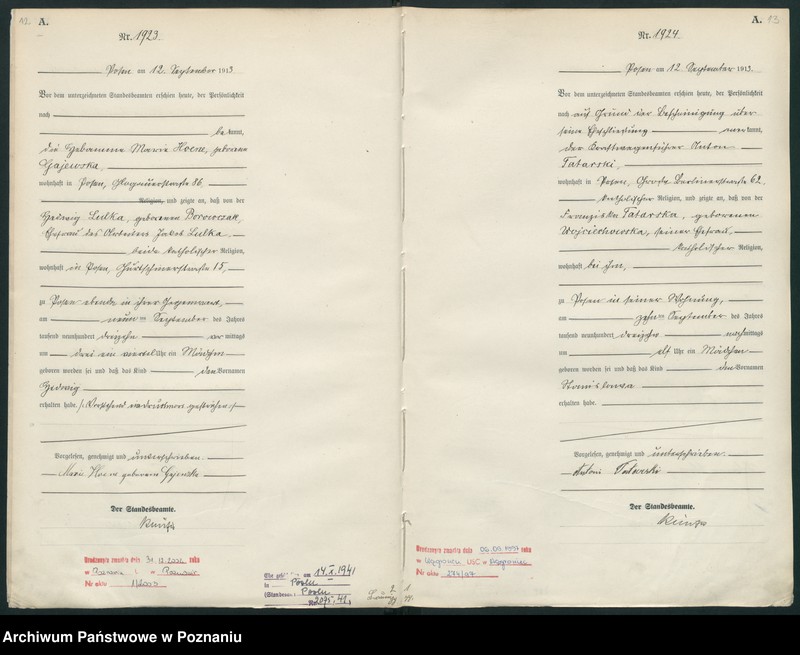 12. A.
Nr. 1923
Posen am 12. September 1913
Vor dem unterzeichneten Standesbeamten erschien heute, der Persönlichkeit
nach
be kannt,
die Hebamme Marie Hoem, geborene
Gajewska
wohnhaft in Posen, Glogauerstraße 86
Religion, und zeigte an, daß von der
Hedwig Lulka, geborenen Borowczak,
Ehefrau des Arbeiters Jakob Lulka,
beide katholischer Religion,
wohnhaft in Posen, 15,
zu Posen ebenda in ihrer Gegenwart,
am neun ten September des Jahres
tausend neunhundert dreizehn vor mittags
um drei ein viertel Uhr ein Mädchen
geboren worden sei und daß das Kind den Vornamen
Hedwig
erhalten habe. /: Vorstehend ein Druckwort gestrichen :/
Vorgelesen, genehmigt und unterschrieben
Marie geborene
Der Standesbeamte.
Urodzonego zmarła dnia 31.12.2002 roku
w w Poznań
Nr aktu
Ehe am 14.X.1941
in Posen
(Standesa Posen
Nr. 2095/41)
A. 13
Nr. 1924
Posen am 12 September 1913
Vor dem unterzeichneten Standesbeamten erschien heute, der Persönlichkeit
nach auf Grund der Bescheinigung über
seine Eheschließung aner kannt,
der Kraftwagenführer Anton
Tatarski,
wohnhaft in Posen, Große Berlinerstraße 62,
katholischer Religion, und zeigte an, daß von der
Franziska Tatarska, geborenen
Wojciechowska, seiner Ehefrau,
katholischer Religion,
wohnhaft bei ihm,
zu Posen in seiner Wohnung,
am zehn ten September des Jahres
tausend neunhundert dreizehn nachmittags
um elf Uhr ein Mädchen
geboren worden sei und daß das Kind den Vornamen
Stanislawa
erhalten habe.
Vorgelesen, genehmigt und unterschrieben
Antoni Tatarski
Der Standesbeamte.
Urodzonego zmarła dnia 06.09.1997 roku
w Wągrowiec USC w Wągrowiec
Nr aktu 274/97
Archiwum Państwowe w Poznaniu